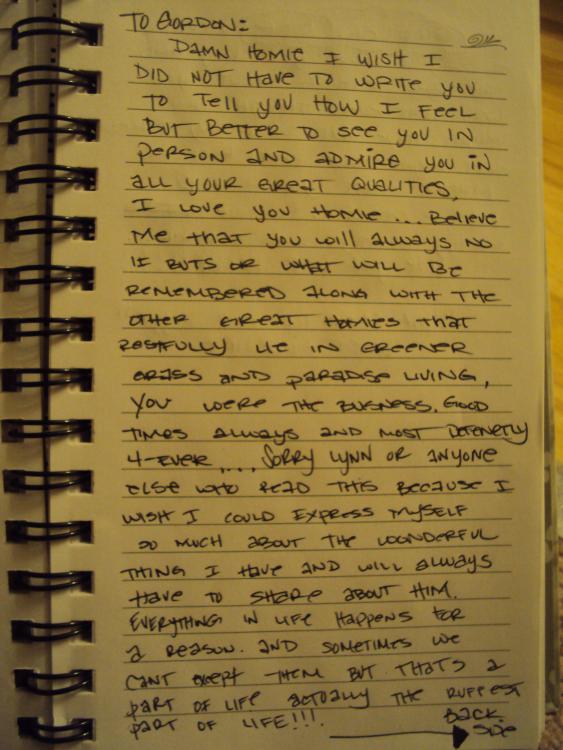 TO GORDON:
DAMN HOMIE I WISH I
DID NOT HAVE TO WRITE YOU
TO TELL YOU HOW I FEEL
BUT BETTER TO SEE YOU IN
PERSON AND ADMIRE YOU IN
ALL YOUR GREAT QUALITIES,
I LOVE YOU HOMIE ... BELIEVE
ME THAT YOU WILL ALWAYS NO
IF BUTS OR WHAT WILL BE
REMEMBERED ALONG WITH THE
OTHER GREAT HOMIES THAT
RESTFULLY LIE IN GREENER
GRASS AND PARADISE LIVING,
YOU WERE THE BUSNESS. GOOD
TIMES ALWAYS AND MOST DEFENETLY
4-EVER .... SORRY LYNN OR ANYONE
ELSE WHO READ THIS BECAUSE I
WISH I COULD EXPRESS MYSELF
SO MUCH ABOUT THE WONDERFUL
THING I HAVE AND WILL ALWAYS
HAVE TO SHARE ABOUT HIM.
EVERYTHING IN LIFE HAPPENS FOR
A REASON. AND SOMETIMES WE
CANT EXEPT THEM BUT THATS A
PART OF LIFE ACTUALLY THE RUFFEST
PART OF LIFE!!!
BACK SIDE